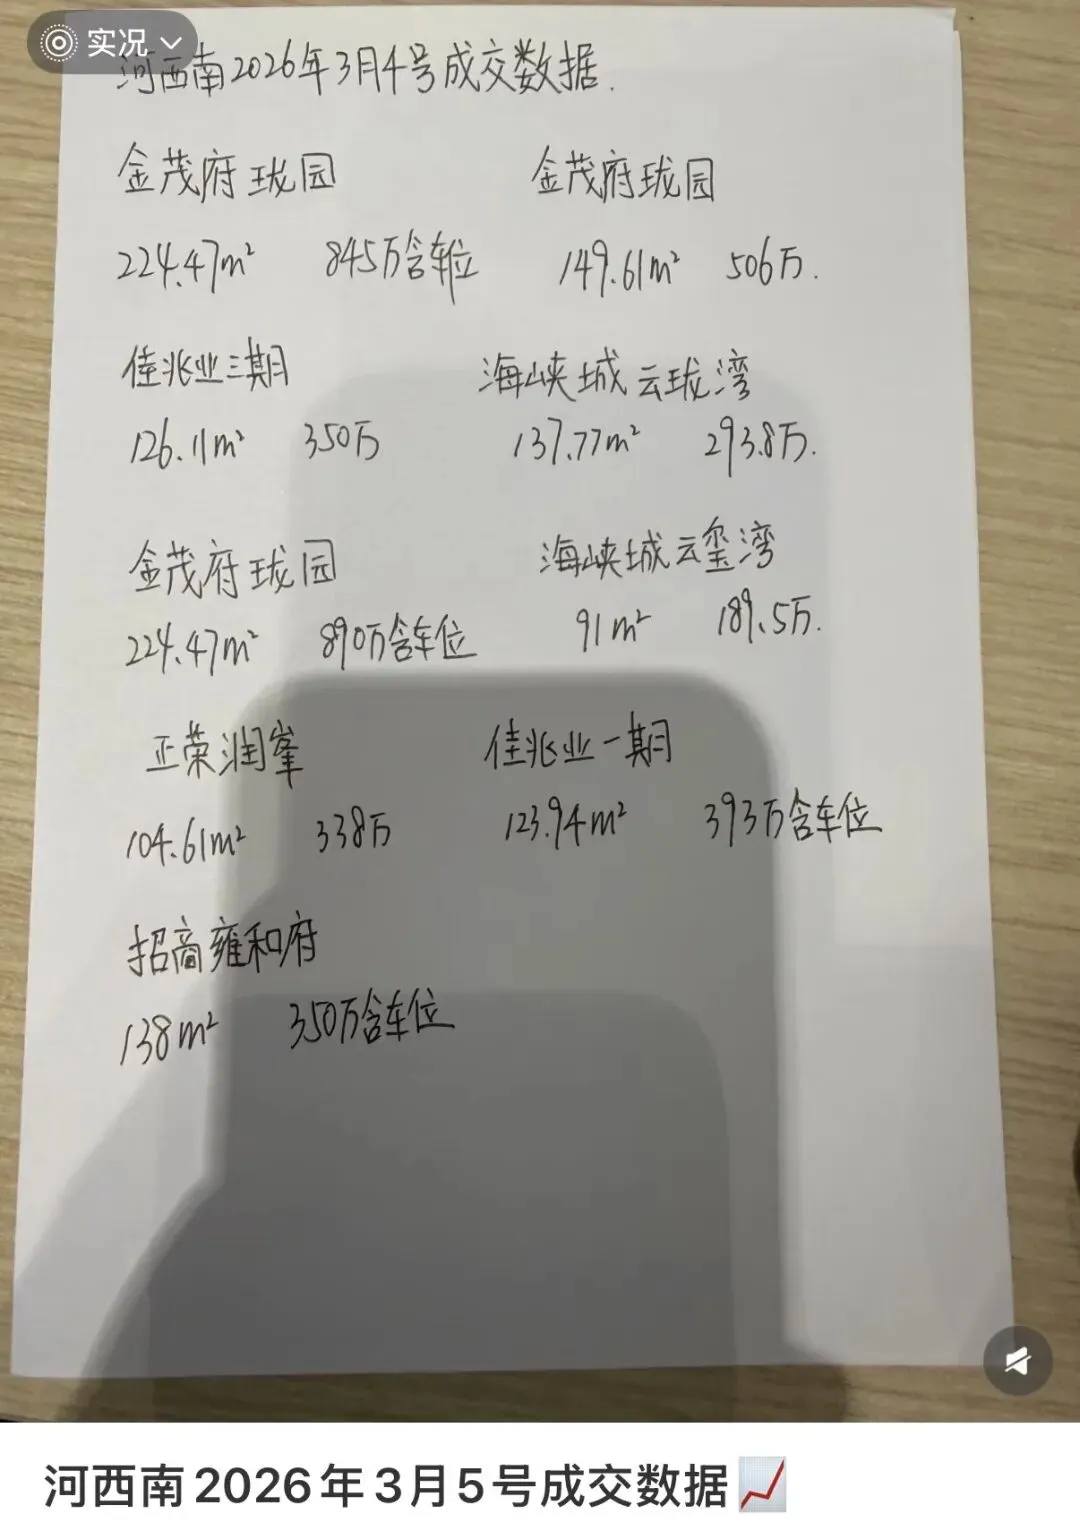 实况
河西南2026年3月4号成交数据.
金茂府珑园 金茂府珑园
224.47m² 845万含车位 149.61m² 506万.
佳兆业三期 海峡城云珑湾
126.11m² 350万 137.77m² 293.8万.
金茂府珑园 海峡城云玺湾
224.47m² 890万含车位 91m² 189.5万.
正荣润峯 佳兆业一期
104.61m² 338万 123.94m² 393万含车位
招商雍和府
138m² 350万含车位
河西南2026年3月5号成交数据📈